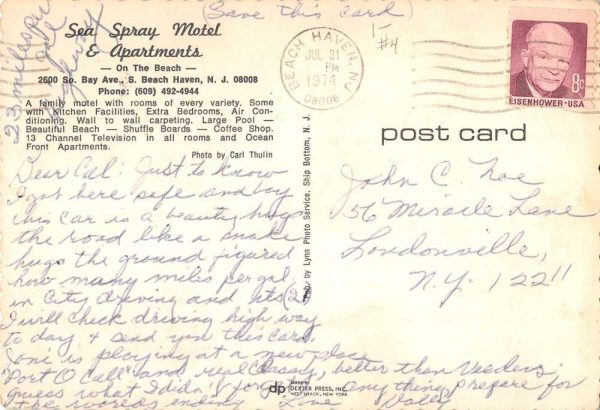 (Save this card)
Sea Spray Motel
& Apartments
— On The Beach —
2600 So. Bay Ave., S. Beach Haven, N. J. 08008
Phone: (609) 492-4944
A family motel with rooms of every variety. Some
with Kitchen Facilities, Extra Bedrooms, Air Con-
ditioning. Wall to wall carpeting. Large Pool —
Beautiful Beach — Shuffle Boards — Coffee Shop.
13 Channel Television in all rooms and Ocean
Front Apartments.
Photo by Carl Thulin
23 miles per
gal
highway
1-
#4
BEACH HAVEN, NJ
JUL 31
PM
1974
08008
8c
EISENHOWER·USA
post card
Dear Cal: Just to know
I got here safe and boy
this car is a beauty hugs
the road like a snake
hugs the ground figured
how many miles per gal.
in City driving and its (2)
I will check driving high way
to day & send you this card.
Joni is playing at a new place
"Port O Call" and real classy, better than Veeders.
guess what I didn't forget anything prepare for
the worlds ending Love
John C. Noe
56 Miracle Lane
Loudonville,
N.Y. 12211
by Lynn Photo Service, Ship Bottom, N. J.
dp
MADE BY
DEXTER PRESS, INC.
WEST NYACK, NEW YORK